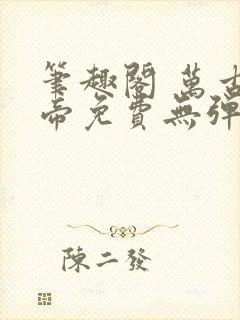 筆趣閣 萬古
帝免費無彈
陳二發